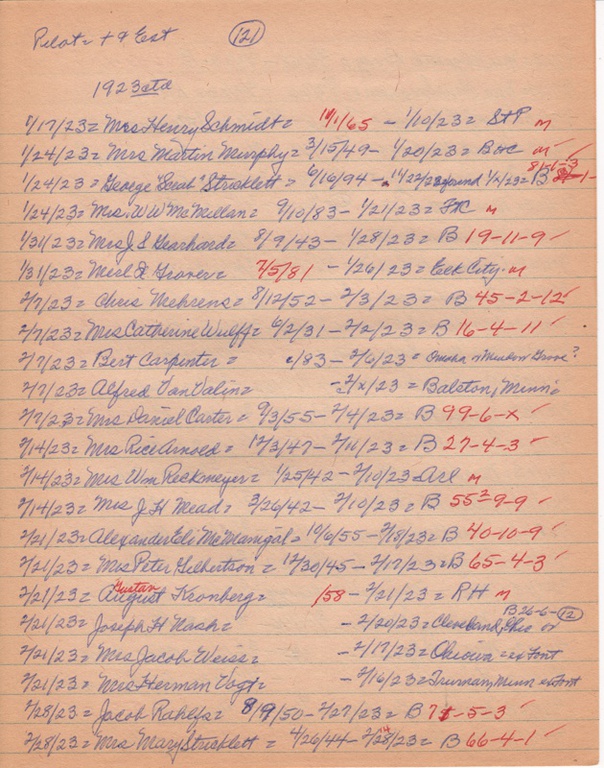 Pilot = + & Ent (121)
1923 etc
1/17/23 = Mrs Henry Schmidt = 11/1/65 - 1/10/23 = St P m
1/24/23 = Mrs Martin Murphy = 3/15/49 - 1/20/23 = B+C m
8/51-3
1/24/23 = George "Scub" Stricklett = 6/16/94 - 11/22/22 found 1/21/23 = B
1/24/23 = Mrs. W W McMillan = 9/10/83 - 1/21/23 = FtC m
1/31/23 = Mrs J S Gearhard = 8/9/43 - 1/28/23 = B 19-11-9 ✓
1/31/23 = Merl F Grover = 7/5/81 - 1/26/23 = Elk City - m
2/7/23 = Chris Mehrens = 8/12/52 - 2/3/23 = B 45-2-12 ✓
2/7/23 = Mrs Catherine Wulff = 6/2/31 - 2/2/23 = B 16-4-11 ✓
2/7/23 = Bert Carpenter = c/83 - 2/6/23 = Omaha or Meadow Grove?
2/7/23 = Alfred Van Valin = - 2/x/23 = Balston, Minn =
2/7/23 = Mrs Daniel Carter = 9/3/55 - 2/4/23 = B 99-6-x ✓
2/14/23 = Mrs Rice Arnold = 12/3/47 - 2/11/23 = B 27-4-3 ✓
2/14/23 = Mrs Wm Reckmeyer = 1/25/42 - 2/10/23 = Arl m
2/14/23 = Mrs J H Mead = 3/26/42 - 2/10/23 = B 55²-9-9 ✓
2/21/23 = Alexander Eli McManigal = 10/6/55 - 2/18/23 = B 40-10-9 ✓
2/21/23 = Mrs Peter Gilbertson = 12/30/45 - 2/17/23 = B 65-4-3 ✓
Gustav
2/21/23 = August Kronberg = /58 - 2/21/23 = RH m
B 26-6-(12)
2/21/23 = Joseph H Nash = - 2/20/23 = Cleveland, Ohio or
2/21/23 = Mrs Jacob Weiss = - 2/17/23 = Ohiowa = ex Font
2/21/23 = Mrs Herman Vogt = - 2/16/23 = Truman, Minn ex Font
2/28/23 = Jacob Rahlfs = 8/9/50 - 2/27/23 = B 75-5-3 ✓
2/28/23 = Mrs Mary Stricklett = 4/26/44 - 2/24/23 = B 66-4-1 ✓